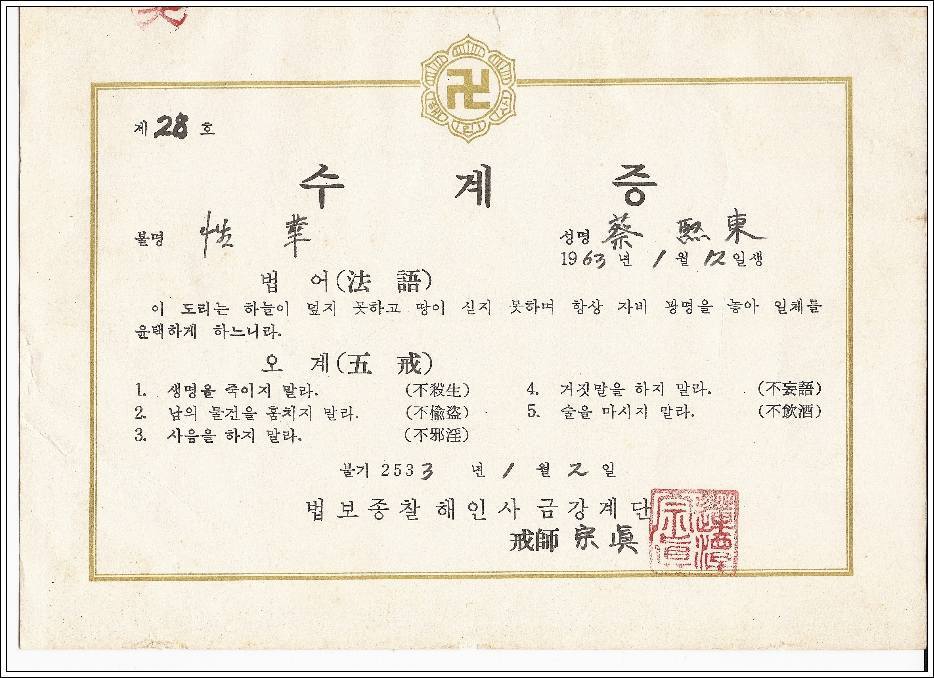 해인사
제 28 호
수 계 증
불명 性 華
성명 蔡 熙 東
1963 년 1 월 12 일생
법 어 (法 語)
이 도리는 하늘이 덮지 못하고 땅이 싣지 못하며 항상 자비 광명을 놓아 일체를
윤택하게 하느니라.
오 계 (五 戒)
1. 생명을 죽이지 말라. (不殺生)
2. 남의 물건을 훔치지 말라. (不偸盜)
3. 사음을 하지 말라. (不邪淫)
4. 거짓말을 하지 말라. (不妄語)
5. 술을 마시지 말라. (不飮酒)
불기 2533 년 1 월 2 일
법보종찰해인사금강계단
戒師 宗 眞